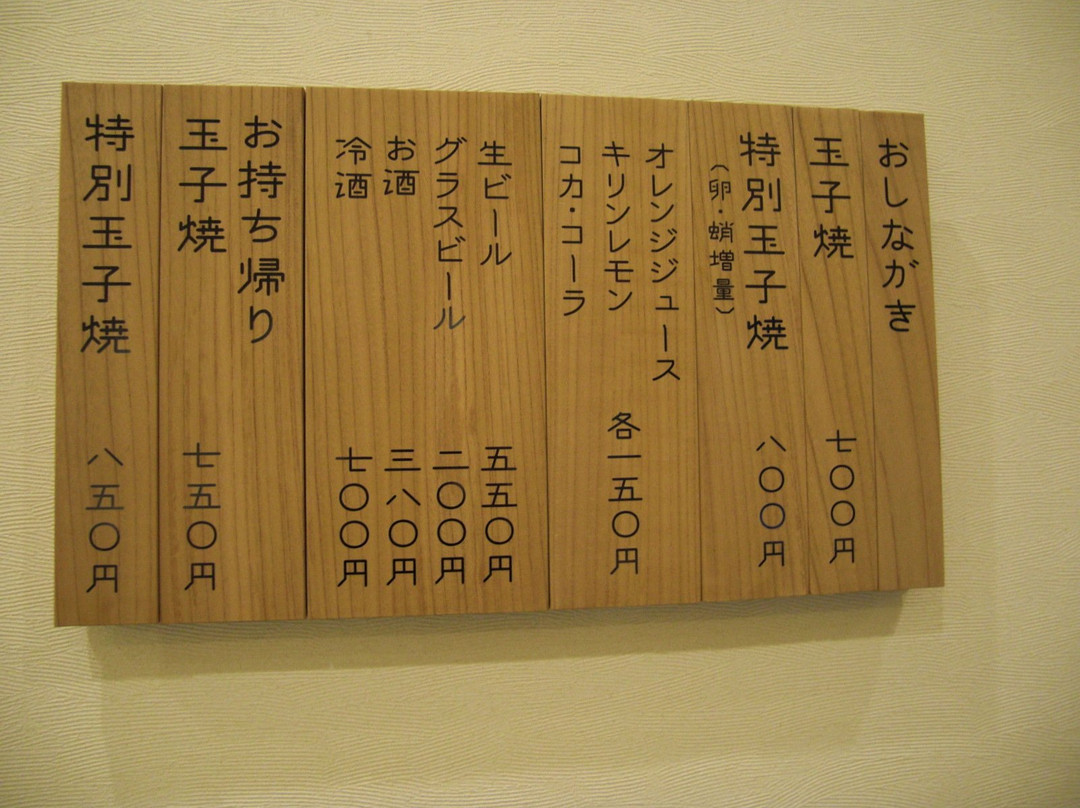 おしながき
玉子焼 七〇〇円
特別玉子焼 八〇〇円
（卵・蛸増量）
オレンジジュース
キリンレモン 各一五〇円
コカ・コーラ
生ビール 五五〇円
グラスビール 二〇〇円
お酒 三八〇円
冷酒 七〇〇円
お持ち帰り
玉子焼 七五〇円
特別玉子焼 八五〇円